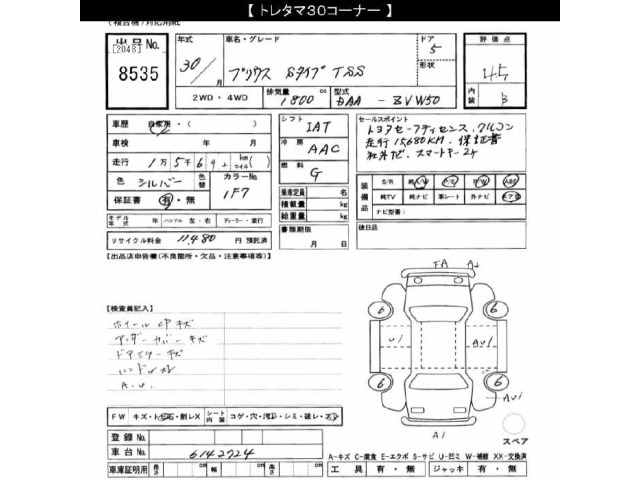 【 トレタマ30コーナー 】
(複合機)対応用紙
出品No.
[2048]
8535
年式
30/月
車名・グレード
プリウス Sタイプ TSS
ドア
5
形状
評価点
4.5
内装
B
2WD・4WD
排気量
1800 cc
型式
DAA - ZVW50
車歴 自家用・( )
車検 年 月
走行 1万5千6 km(マイル)
色 シルバー
色替
カラーNo.
1F7
保証書 有・無
シフト
IAT
冷房
AAC
燃料
G
乗車定員 名
積載量 kg
総重量 kg
書類期限
月 日
セールスポイント
トヨタセーフティセンス、クルコン
走行15,680KM、保証書
社外ナビ、スマートキー2ヶ
装備品
S/R 純A/W P/S P/W ABS
純TV 純ナビ 革シート 外ナビ エアB
ナビ型番:
後日品
モデル年式 年 ハンドル 左・右 ディーラー・並行
リサイクル料金 11,480 円 預託済
【出品店申告欄(不良箇所・欠品・注意事項等)】
【検査員記入】
ホイールCPキズ
アンダーカバーキズ
ドアミラーキズ
ハンドルスレ
A.U.
FA A2
6 6
U1 AU1
6 6
AU1
A1
スペア
FW キズ・トビ石・割レX
シート内装
コゲ・穴・汚レ・シミ・破レ・スレ
登録No.
車台No. 6142724
A-キズ C-腐食 E-エクボ S-サビ U-凹ミ W-補修 XX-交換済
車庫証明用 長さ cm 幅 cm 高さ cm
工具 有・無 ジャッキ 有・無